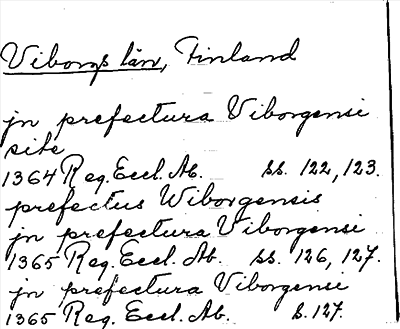 Viborgs län, Finland
jn prefectura Viborgensi
site
1364 Reg. Eccl. Ab. ss. 122, 123.
prefectus Wiborgensis
jn prefectura Viborgensi
1365 Reg. Eccl. Ab. ss. 126, 127.
jn prefectura Viborgensi
1365 Reg. Eccl. Ab. s. 127.